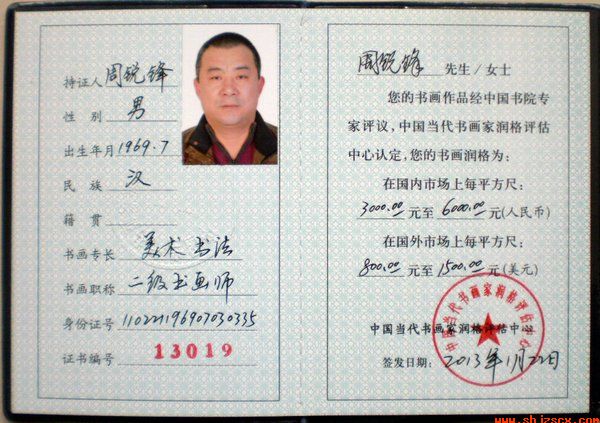 持证人 周锐锋
性别 男
出生年月 1969.7
民族 汉
籍贯
书画专长 美术 书法
书画职称 二级书画师
身份证号 110221196907030335
证书编号 13019
周锐锋 先生/女士
您的书画作品经中国书院专
家评议,中国当代书画家润格评估
中心认定,您的书画润格为:
在国内市场上每平方尺:
3000.00元至6000.00元(人民币)
在国外市场上每平方尺:
800.00元至1500.00元(美元)
中国当代书画家润格评估中心
中国当代书画家润格评估中心
签发日期: 2013年1月22日
www.shjzscx.com